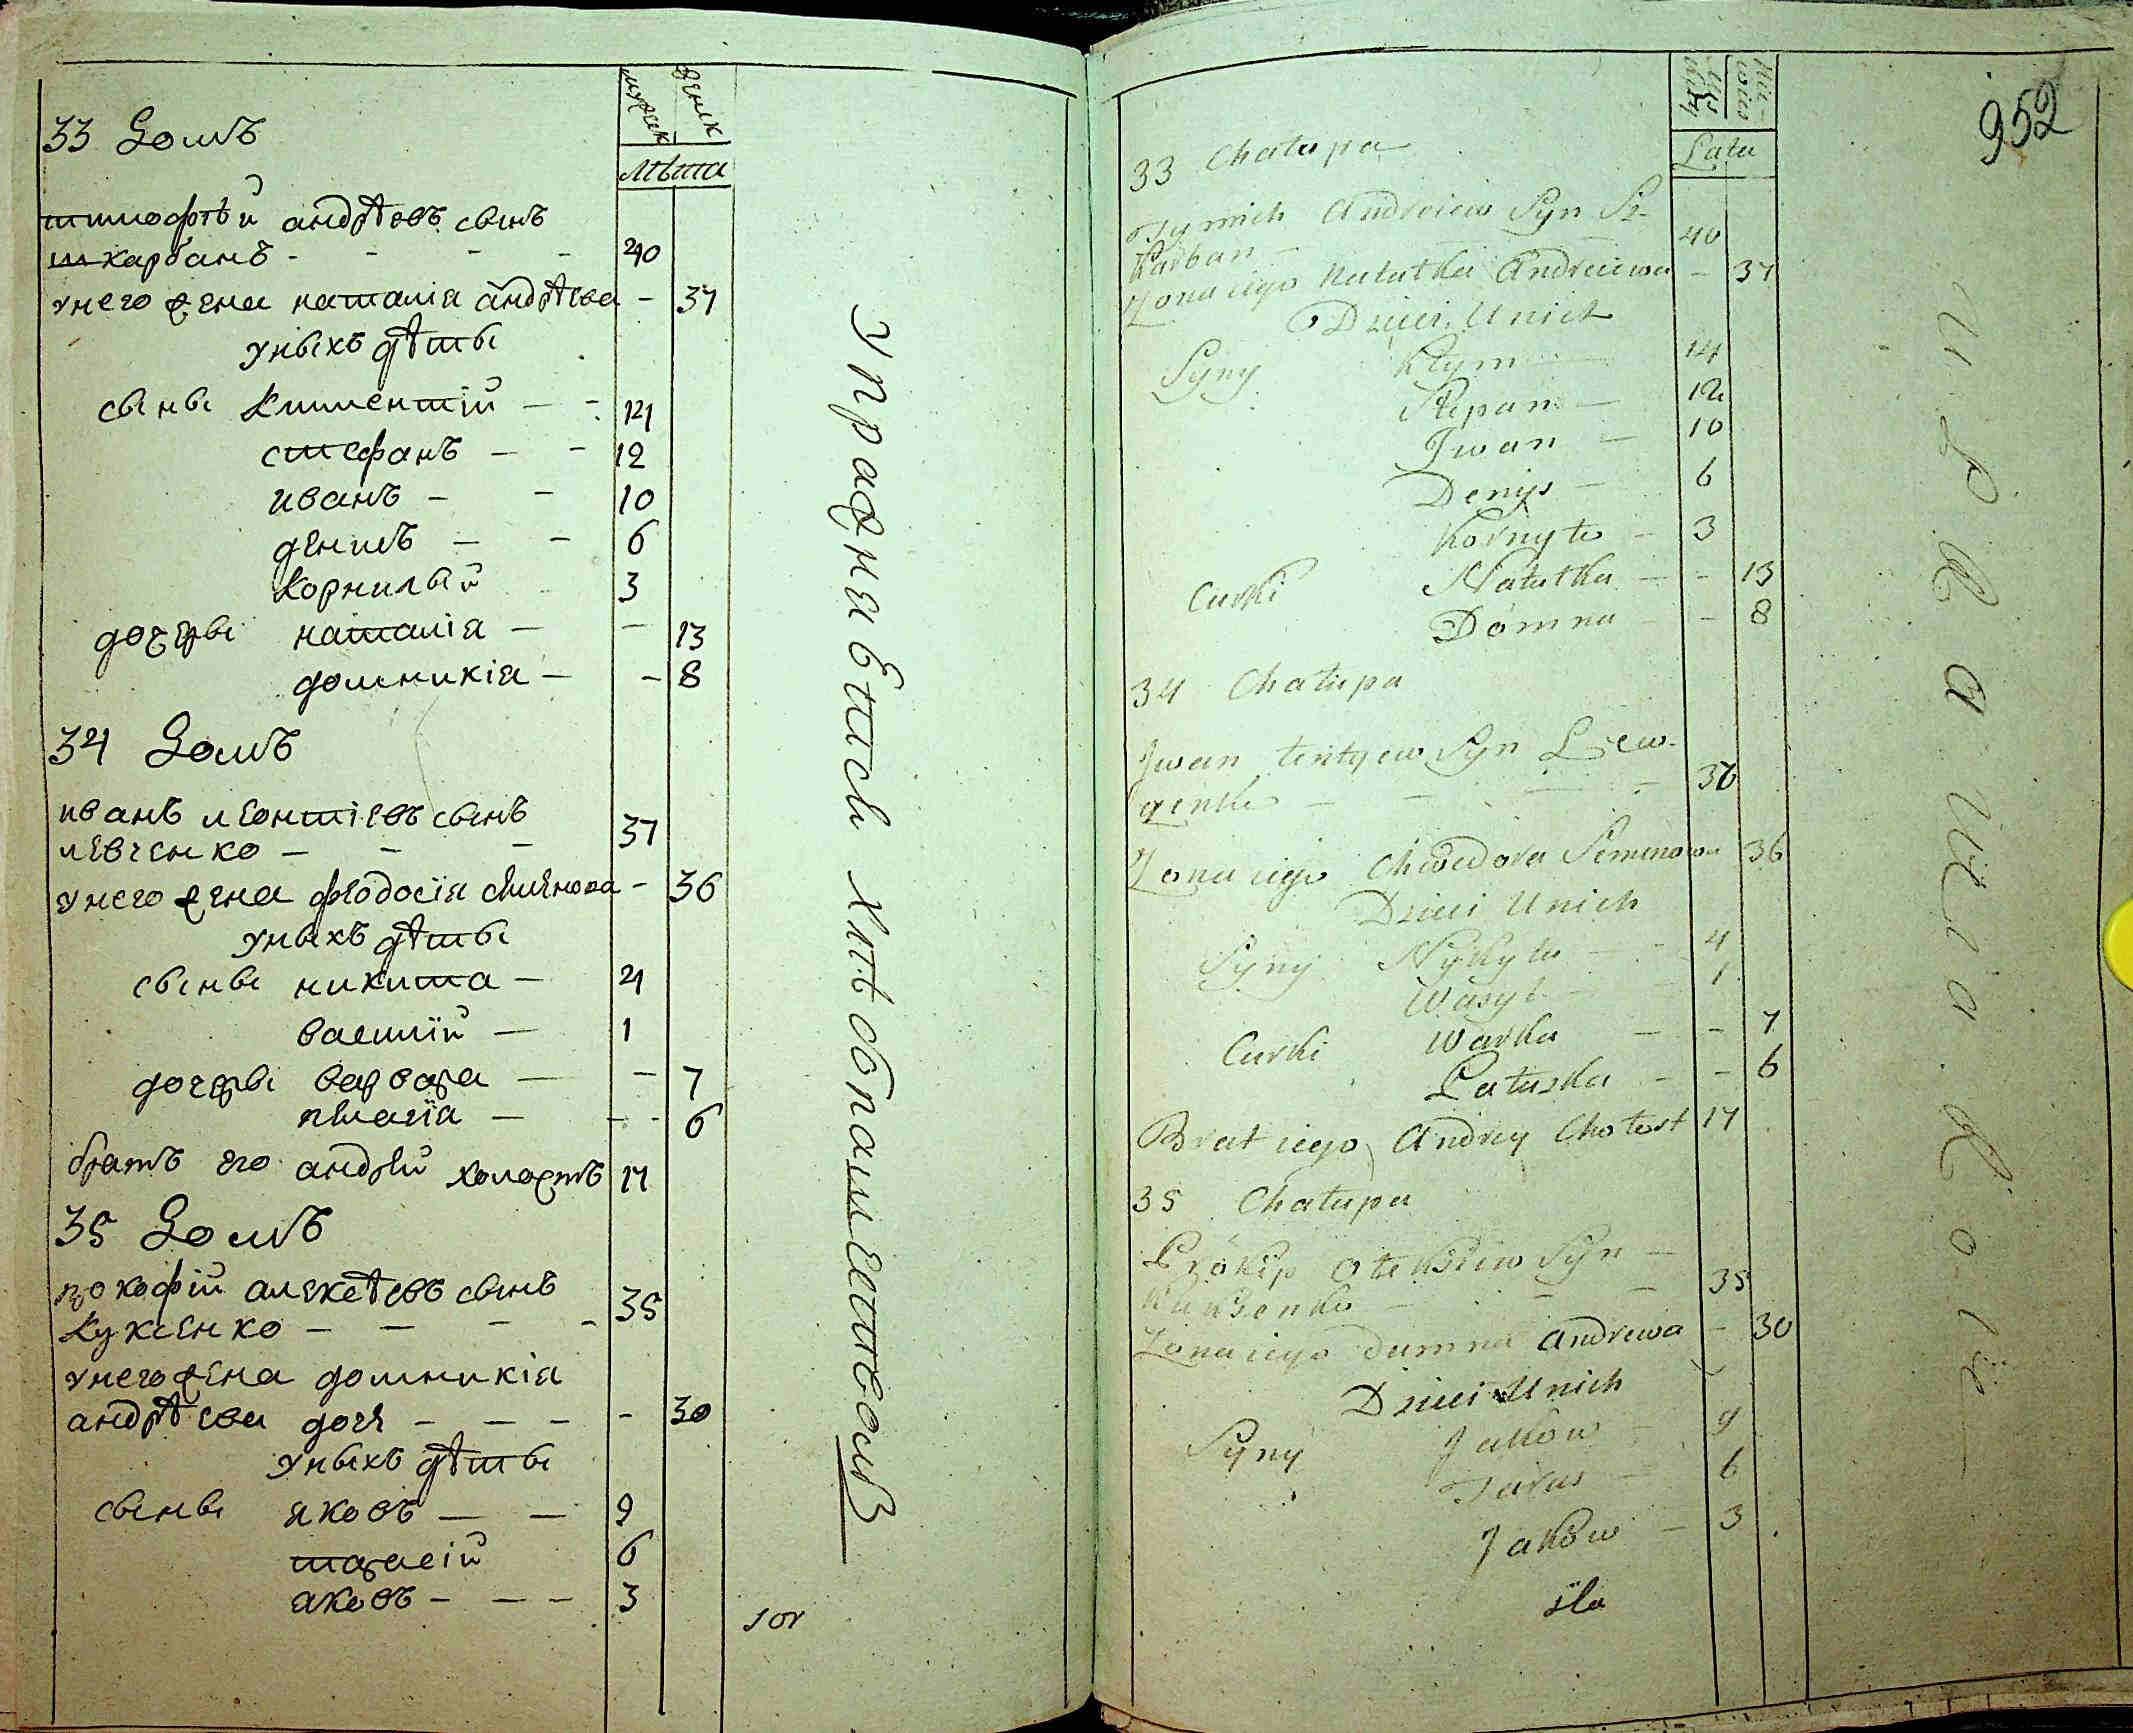 мужск женск
лѣта
33 Домъ
тимофѣй андрѣевъ сынъ
шкарбанъ - - - - 40
унего жена наталія андрѣева - 37
уныхъ дѣты
сыны климентій - - 14
стефанъ - - 12
иванъ - - 10
денисъ - - 6
корнилый 3
дочеры наталія - - 13
домникія - - 8
34 Домъ
иванъ леонтіевъ сынъ
левченко - - - 37
унего жена феодосія семенова - 36
уныхъ дѣты
сыны никита - 4
василій - 1
дочеры варвара - - 7
пелагія - - - 6
братъ его андрей холостъ 17
35 Домъ
прокофій алексѣевъ сынъ
куксенко - - - - 35
унего жена домникія
андрѣева дочь - - - - 30
уныхъ дѣты
сыны яковъ - - 9
тарасій 6
яковъ - - - 3
упражняв хлѣбопашествомъ
952
Latu
33 Chałupa
Tymich Andreiew Syn Sz-
karban - 40
Zona iego Natałka Andreiewa - 37
Dzieci Unich
Syny Kłym - 14
Stepan - 12
Iwan - 10
Denys - 6
Kornyło - 3
Curki Natałka - - 13
Domna - - 8
34 Chałupa
Iwan Syn Lew-
- - - -
Zona iego Chwedora Semenowa 36
Dzieci Unich
Syny Nykyta - - 4
Wasyl - - 1
Curki Warka - - 7
Pałaszka - - 6
Brat iego Andrey Chołost 17
35 Chałupa
Prokip Ołeksiiew Syn -
Kuksenko - - - 35
Zona iego Dumna Andrewa - 30
Dzieci Unich
Syny Jakow - 9
Taras - 6
Jakow - 3